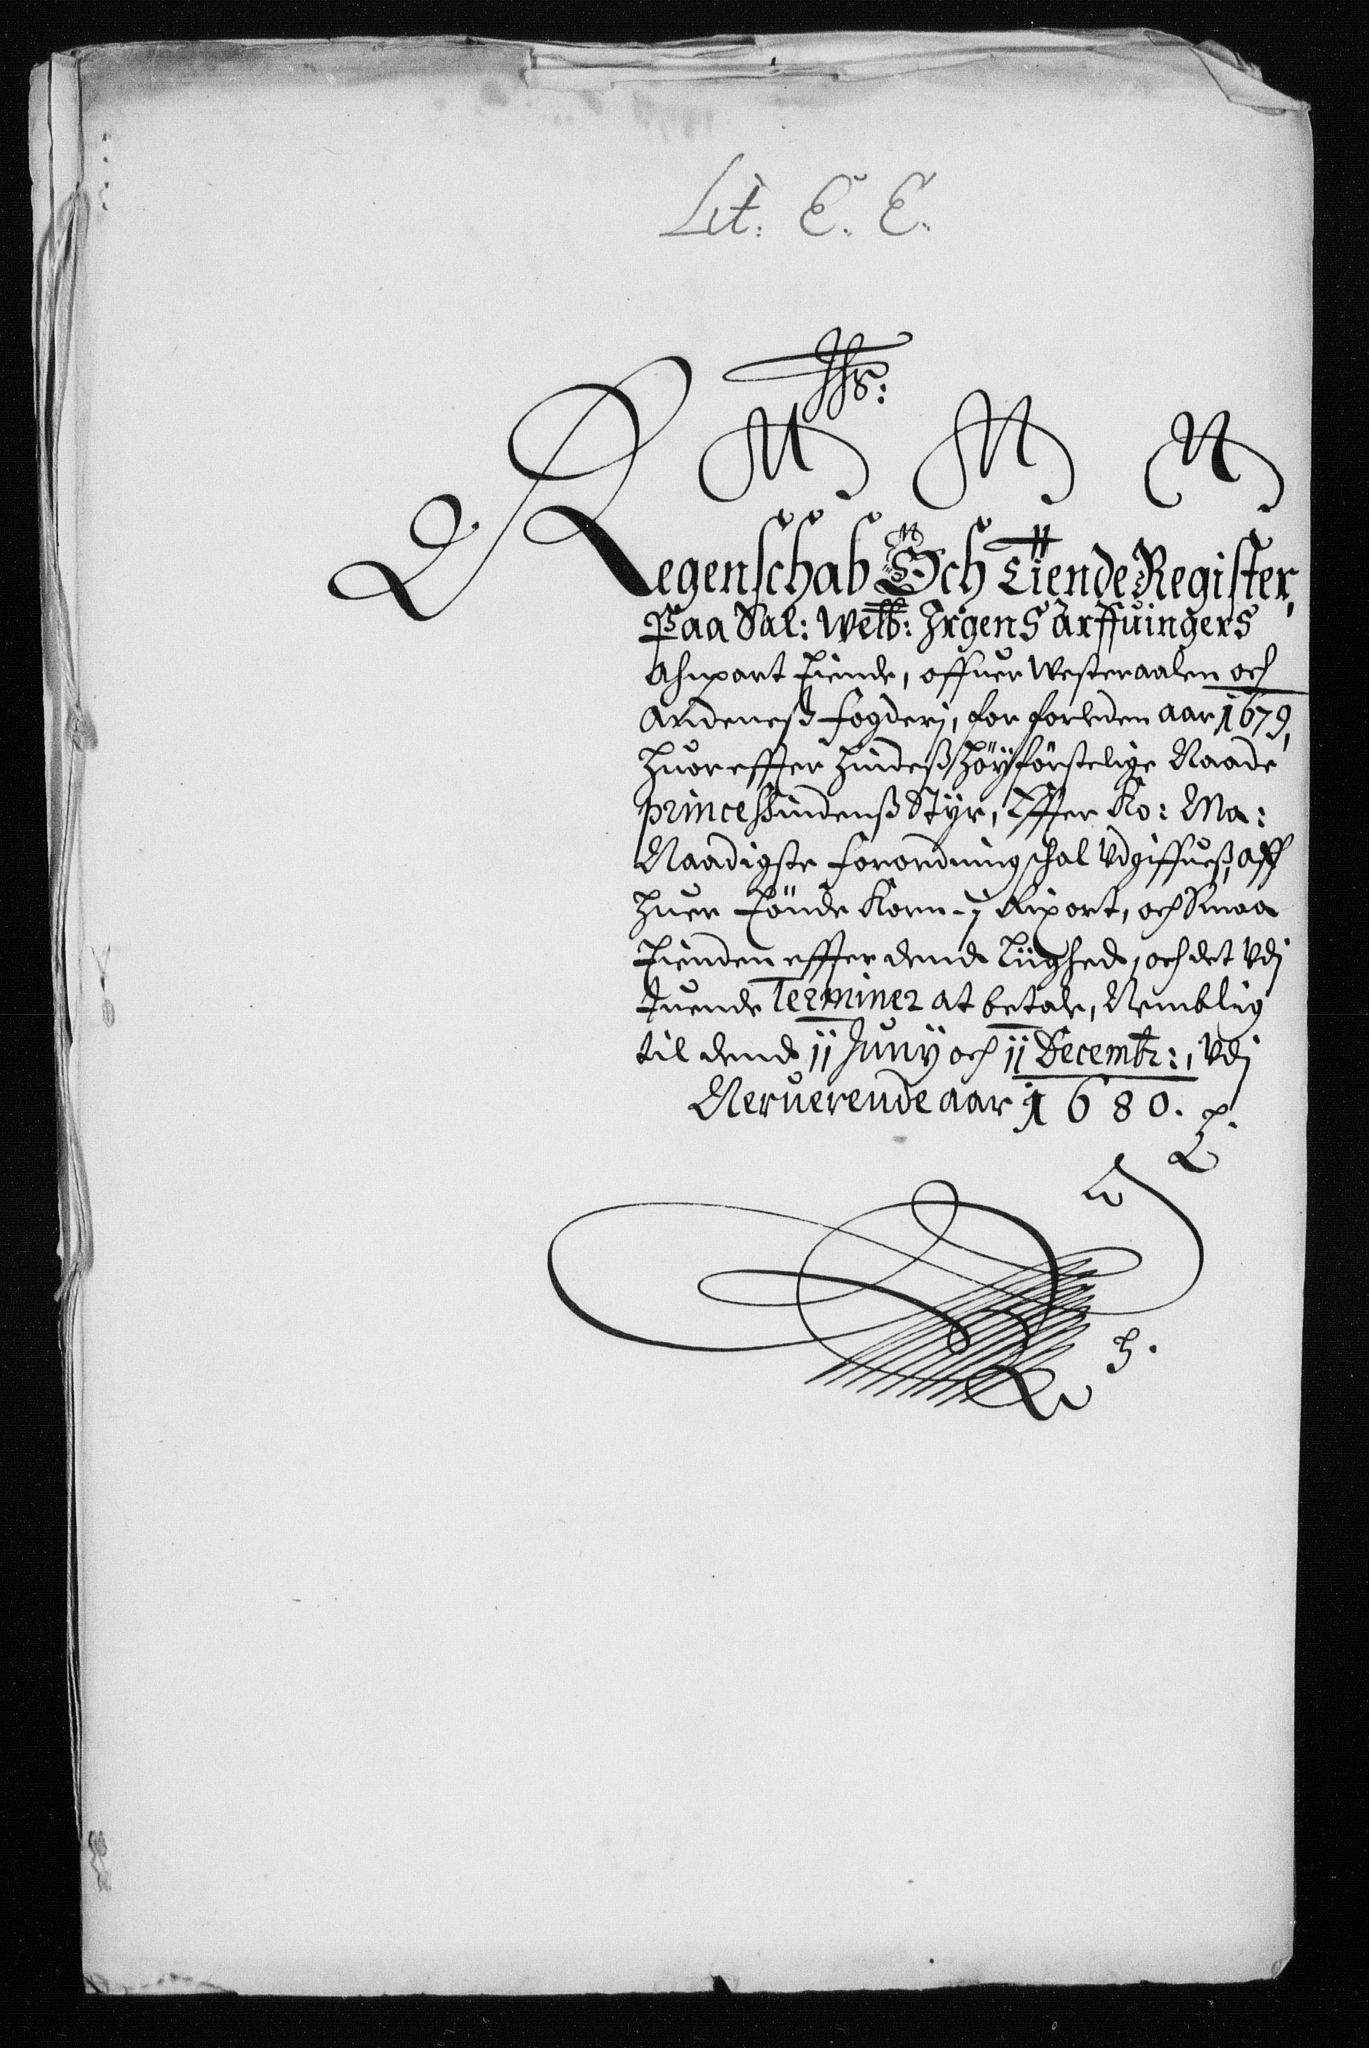 Lit. E. E.
Jhs:
Regenschab Och Tiende Register,
Paa Sal: Welb: Irgens Arffuingers
Anpart Tiende, offuer Westeraalen och
Andeneß fogderj, for forleden aar 1679,
huoreffter hindeß höyförstelige Naade
princessindenß Styr, Effter Ko: Ma:
Naadigste forordning schal Vdgiffueß, aff
huer Tönde Korn - j Rixort, och Smaa
Tienden effter dend Liighed, och det Vdj
tuende Terminer at betale, Nemblig
til dend 11 Juny och 11 Decembr:, Vdj
Neruerende aar 1680.